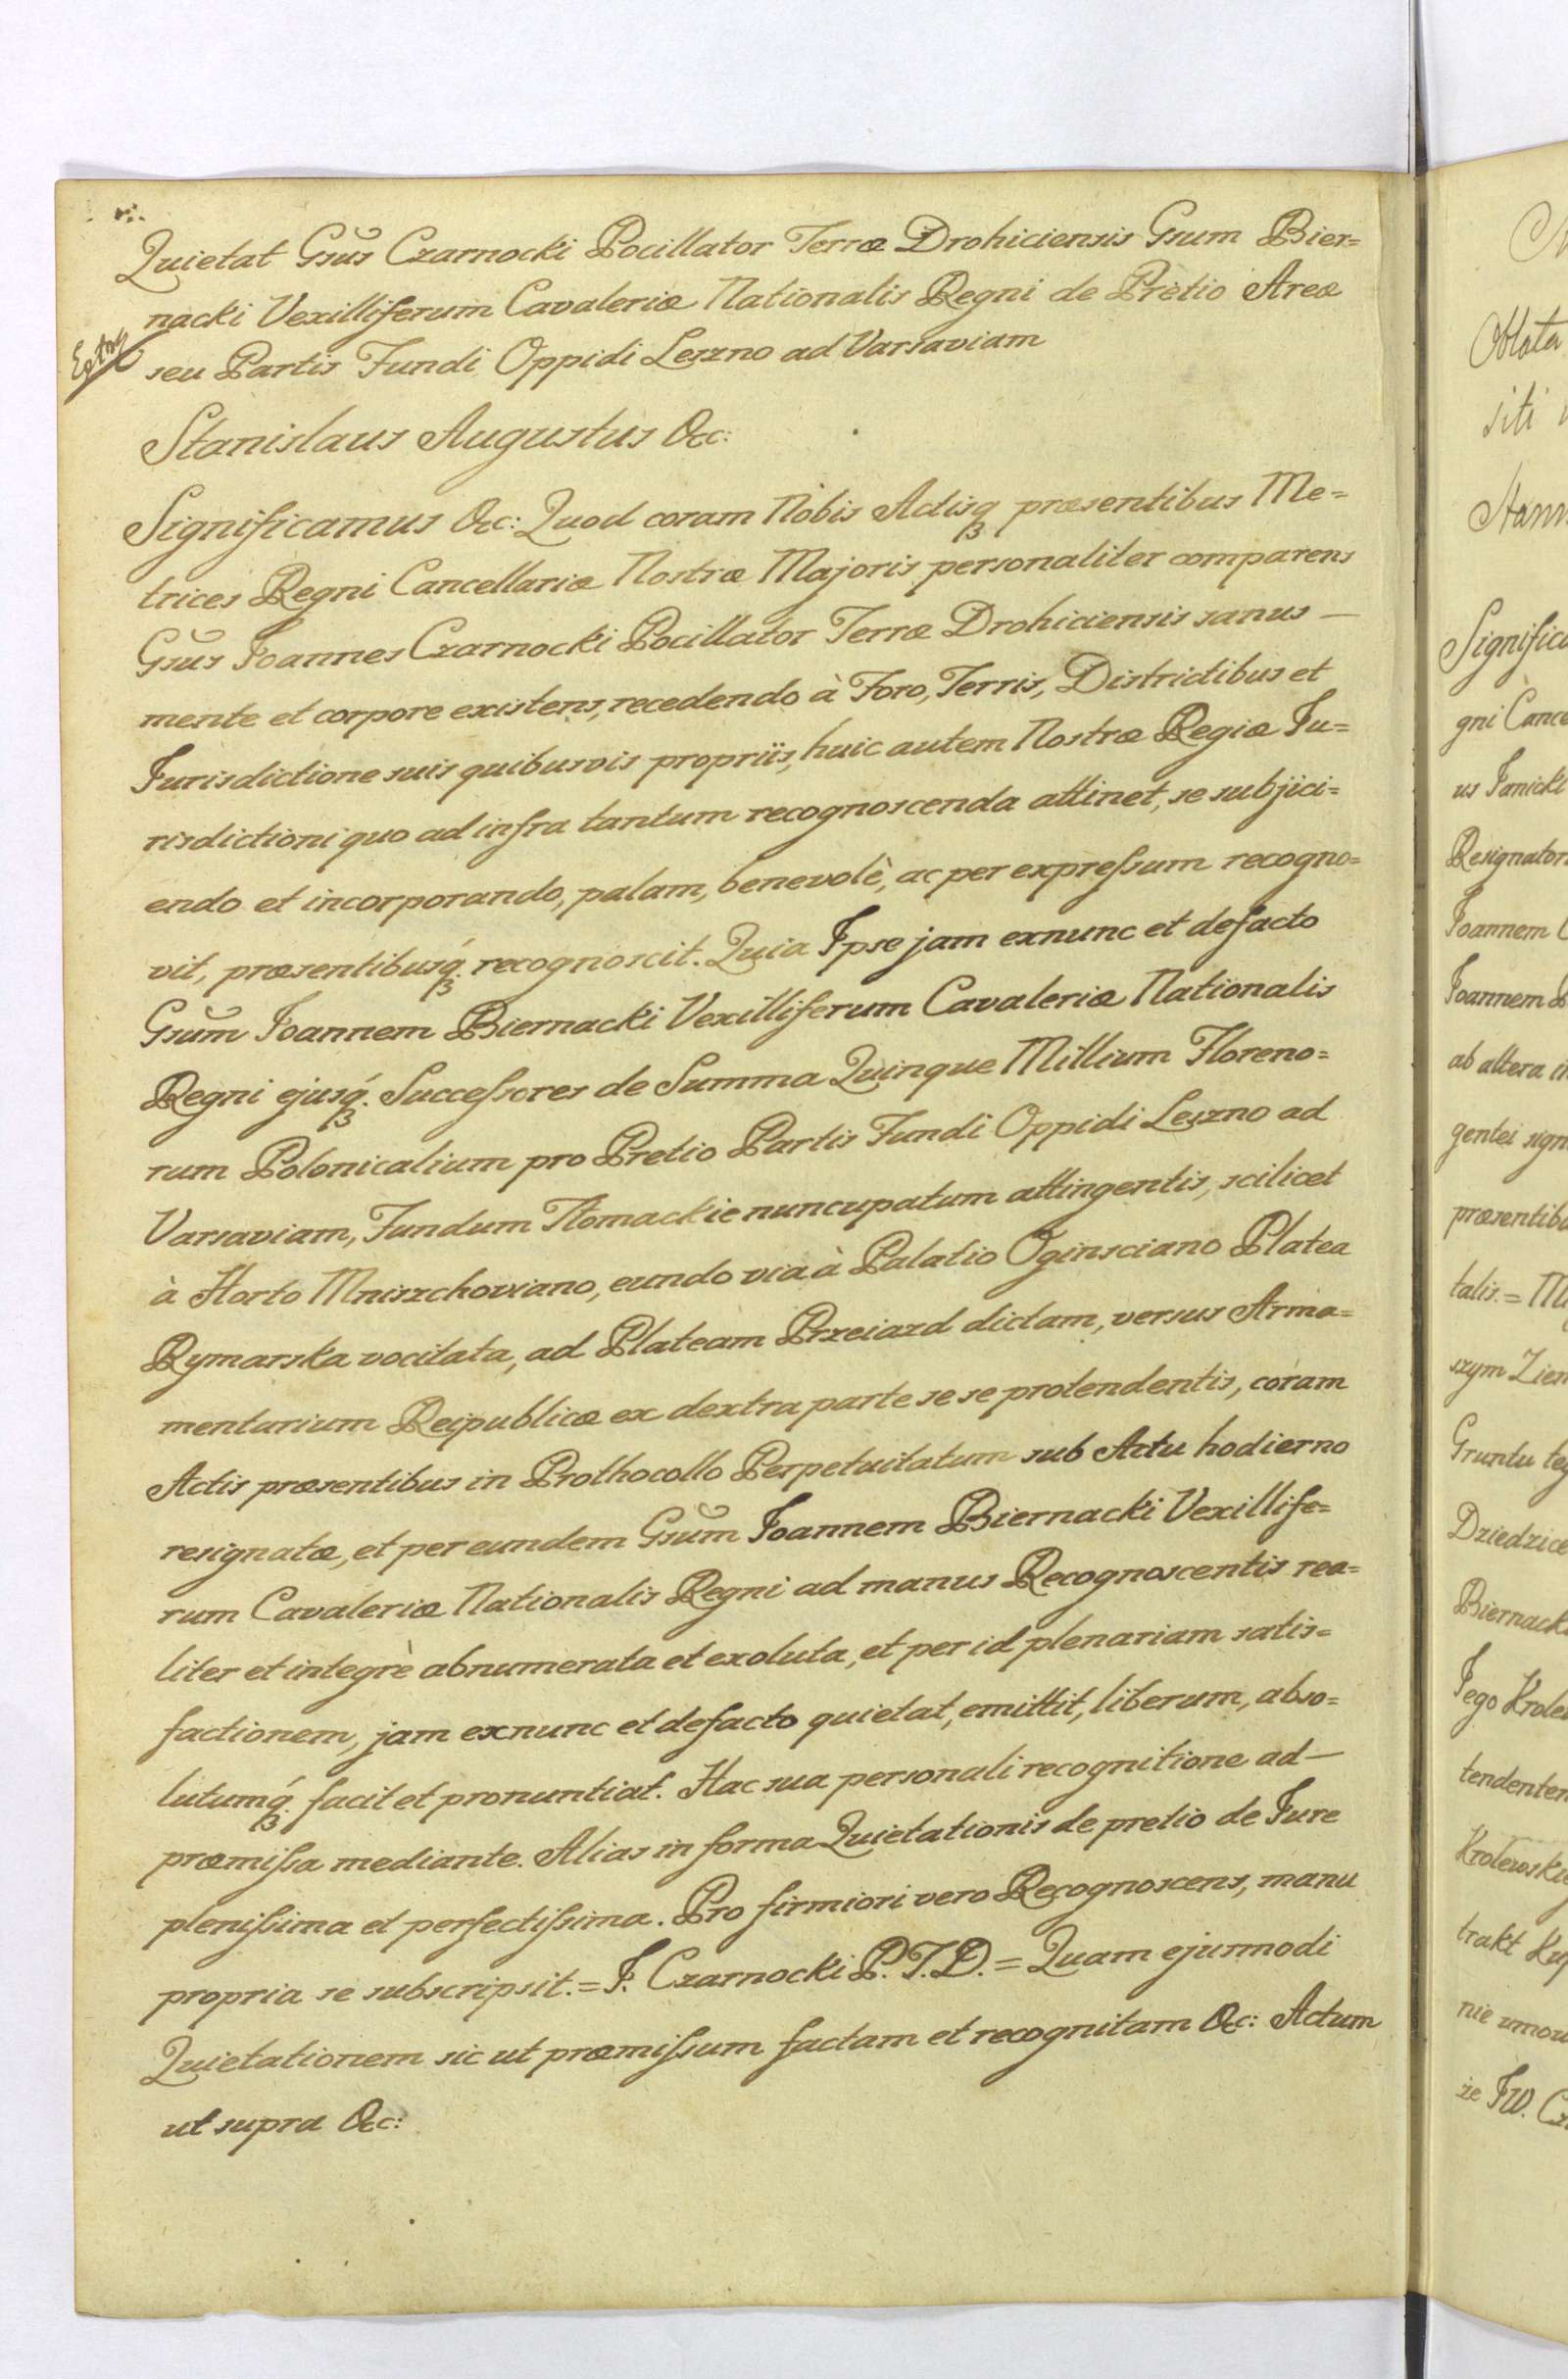 Quietat Gsus Czarnocki Pocillator Terræ Drohiciensis Gsum Bier=
nacki Vexilliferum Cavaleriæ Nationalis Regni de Pretio Areæ
seu Partis Fundi Oppidi Leszno ad Varsaviam
Stanislaus Augustus &c:
Significamus &c: Quod coram Nobis Actisq₃ præsentibus Me=
trices Regni Cancellariæ Nostræ Majoris personaliter comparens
Gsus Joannes Czarnocki Pocillator Terræ Drohiciensis sanus —
mente et corpore existens, recedendo à Foro, Terris, Districtibus et
Jurisdictione suis quibusvis propriis, huic autem Nostræ Regiæ Ju=
risdictioni quo ad infra tantum recognoscenda attinet, se subjici=
endo et incorporando, palam, benevolè, ac per expreſsum recogno=
vit, præsentibusq́₃. recognoscit. Quia Ipse jam exnunc et defacto
Gsum Joannem Biernacki Vexilliferum Cavaleriæ Nationalis
Regni ejusq́₃. Succeſsores de Summa Quinque Millium Floreno=
rum Polonicalium pro Pretio Partis Fundi Oppidi Leszno ad
Varsaviam, Fundum Tłomackie nuncupatum attingentis, scilicet
à Horto Mniszchoviano, eundo via à Palatio Oginsciano Platea
Rymarska vocitata, ad Plateam Przeiazd dictam, versus Arma=
mentarium Reipublicæ ex dextra parte se se protendentis, coram
Actis præsentibus in Prothocollo Perpetuitatum sub Actu hodierno
resignatæ, et per eundem Gsum Joannem Biernacki Vexillife=
rum Cavaleriæ Nationalis Regni ad manus Recognoscentis rea=
liter et integrè abnumerata et exoluta, et per id plenariam satis=
factionem, jam exnunc et defacto quietat, emittit, liberum, abso=
lutumq́₃. facit et pronuntiat. Hac sua personali recognitione ad —
præmiſsa mediante. Alias in forma Quietationis de pretio de Jure
pleniſsima et perfectiſsima. Pro firmiori vero Recognoscens, manu
propria se subscripsit. = J. Czarnocki P. T. D. = Quam ejusmodi
Quietationem sic ut præmiſsum factam et recognitam &c: Actum
ut supra &c:
Oblata
siti
Signific
gni Cance
us Janicki
Resignator
Joannem
Joannem
ab altera
gentei sign
præsentib
talis. =
szym Ziem
Gruntu
Dziedzice
Biernack
Jego Krole
tendenten
Krolewsk
trakt Kup
nie
że JW. Cz